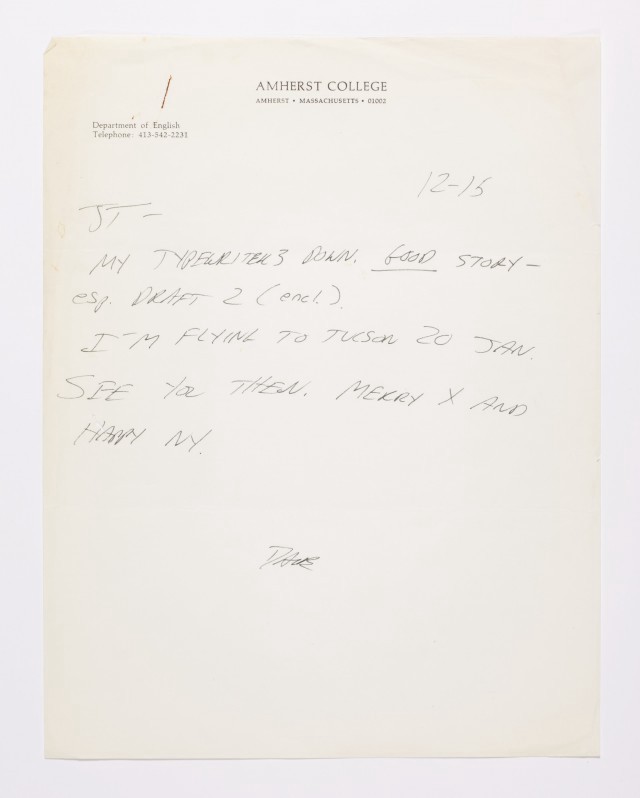 AMHERST COLLEGE
AMHERST • MASSACHUSETTS • 01002
Department of English
Telephone: 413-542-2231
12-15
JT –
MY TYPEWRITER'S DOWN. GOOD STORY –
esp. DRAFT 2 (encl.).
I'M FLYING TO TUCSON 20 JAN.
SEE YOU THEN. MERRY X AND
HAPPY NY.
DAVE